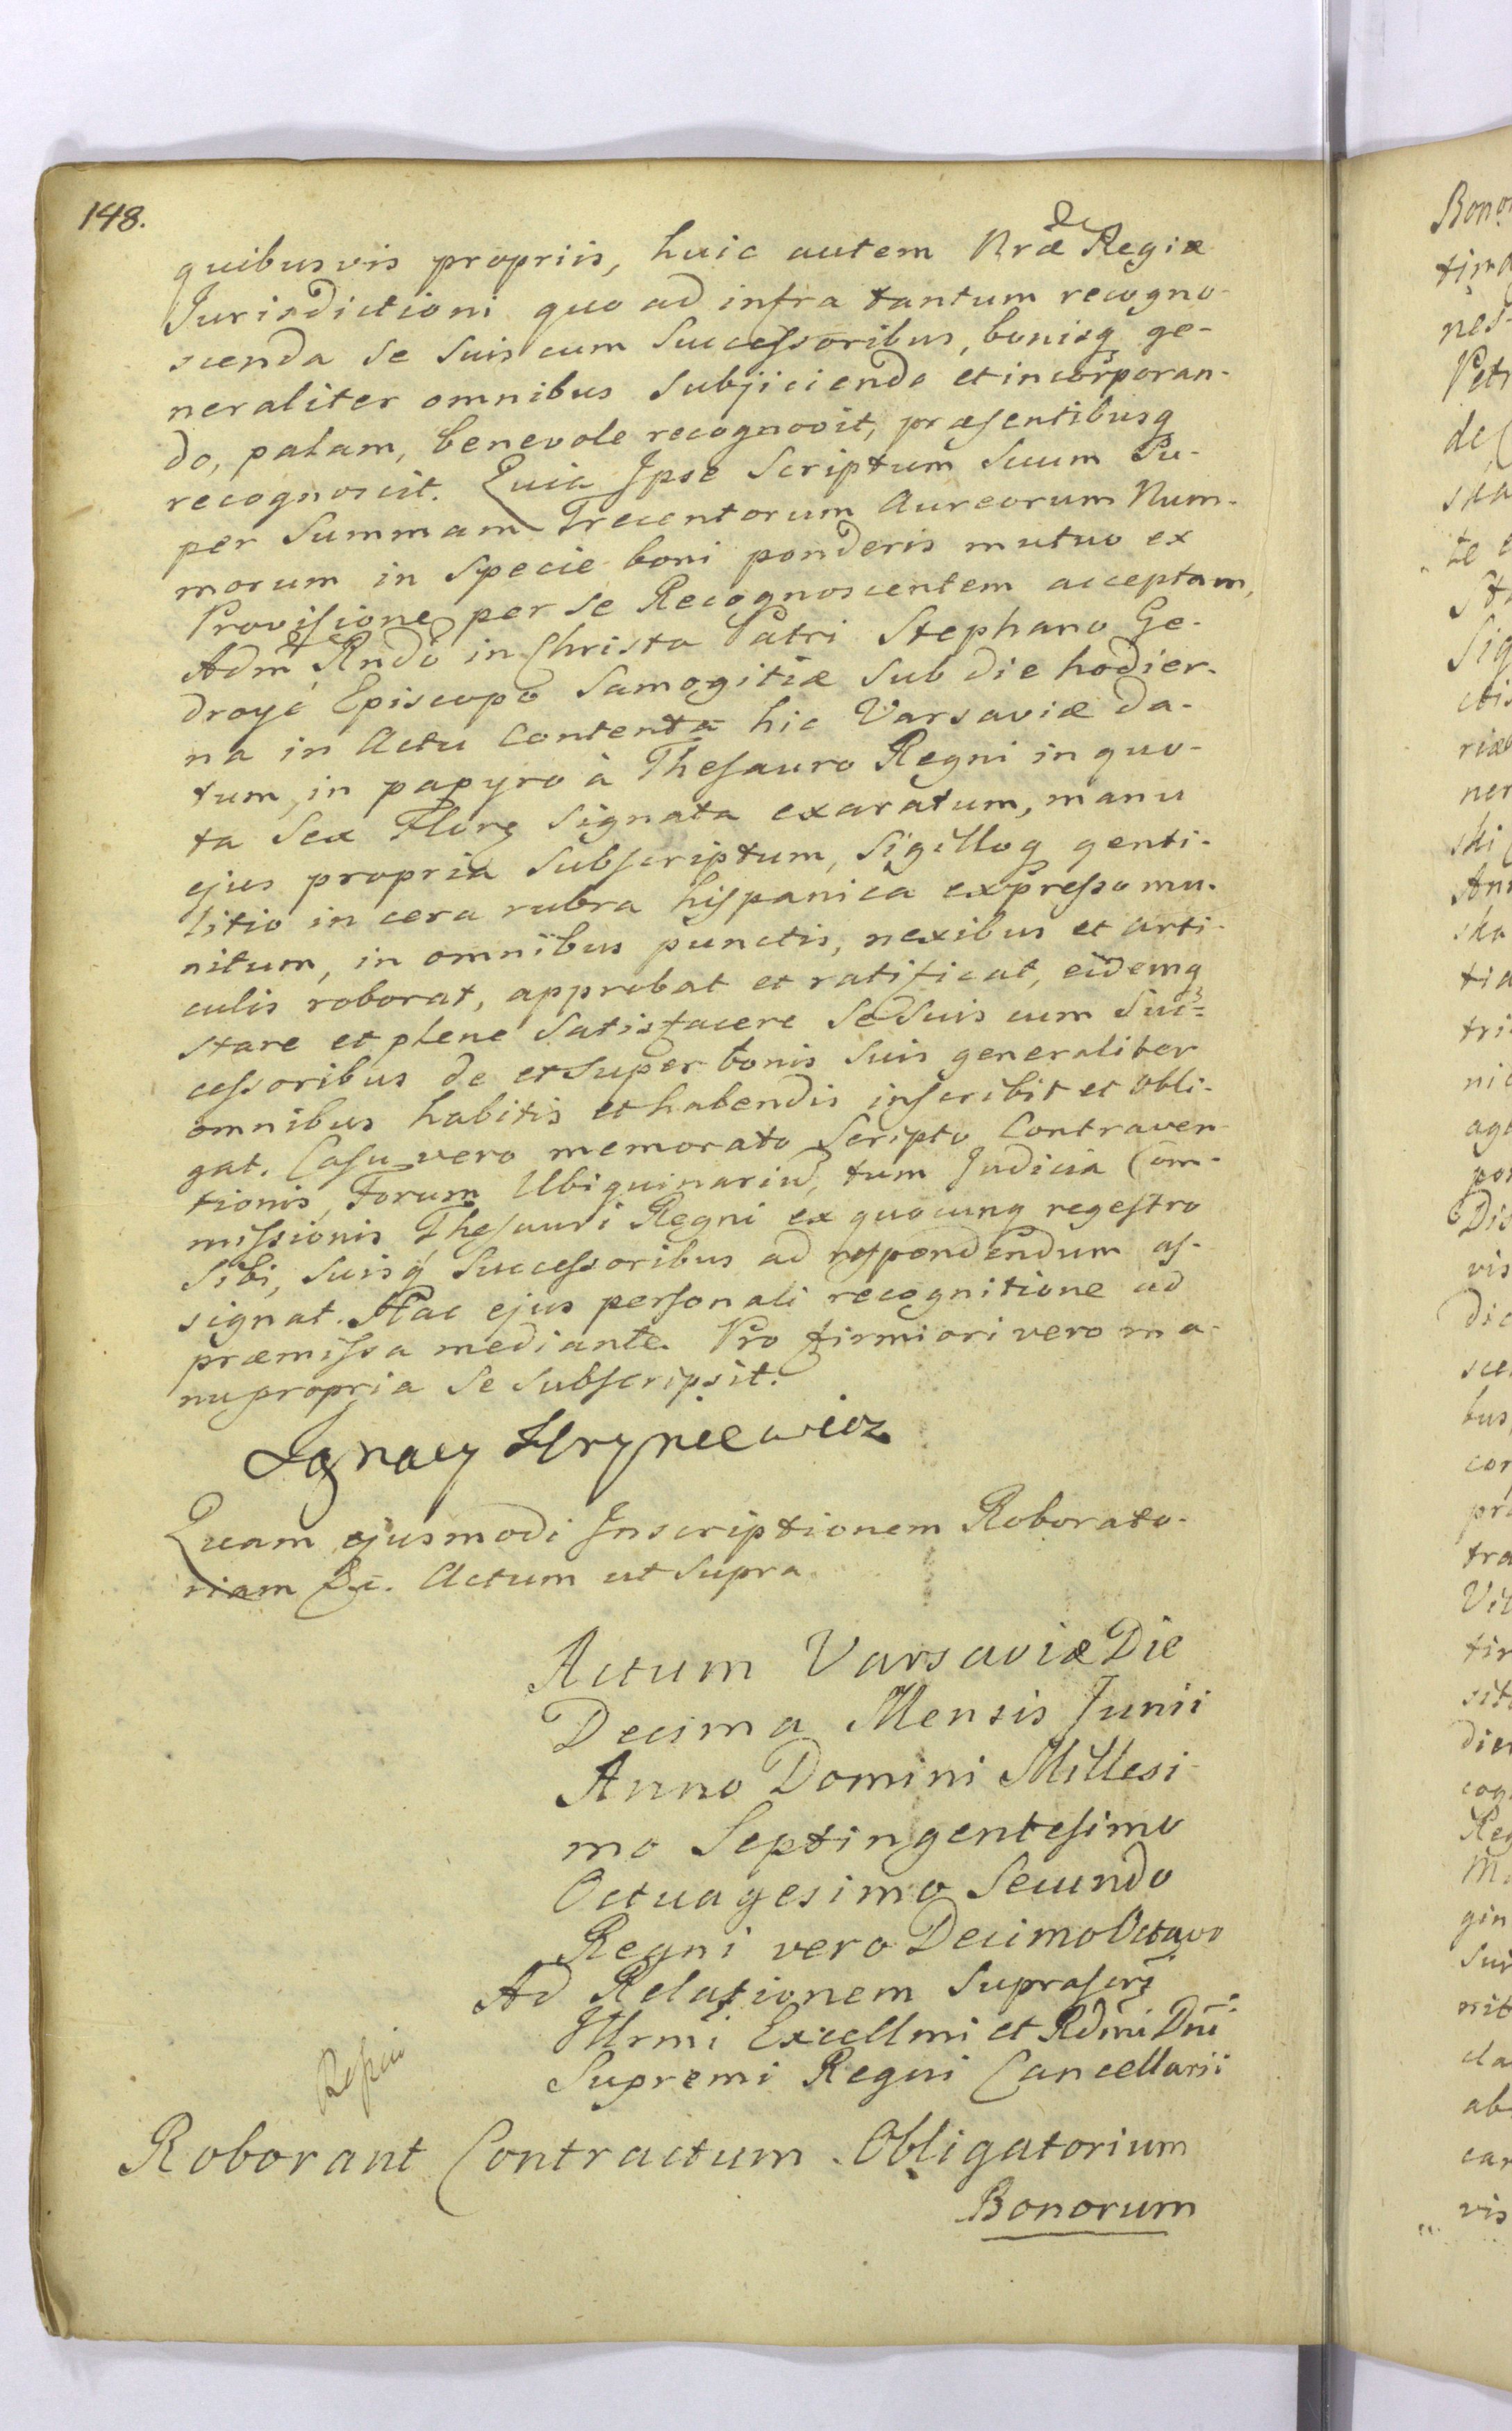 148.
quibusvis propriis, huic autem Nræ Regiæ
Jurisdictioni quo ad infra tantum recogno-
scenda se suis cum Successoribus, bonisq ge-
neraliter omnibus subjiciendo et incorporan-
do, palam, benevole recognovit, præsentibusq
recognoscit. Quia Ipse Scriptum suum Su-
per Summam Trecentorum Aureorum Num-
morum in Specie boni ponderis mutuo ex
Provisione per se Recognoscentem acceptam,
Adm Rndo in Christo Patri Stephano Ge-
droyć Episcopo Samogitiæ sub die hodier-
na in Actu Contenta hic Varsaviæ da-
tum, in papyro à Thesauro Regni in quo-
ta Sex Flor signata exaratum, manu
ejus propria subscriptum, Sigilloq genti-
litio in cera rubra hispanica expresso mu-
nitum, in omnibus punctis, nexibus et arti-
culis roborat, approbat et ratificat, eidemq
stare et plene satisfacere se suis cum Suc=
cessoribus de et super bonis suis generaliter
omnibus habitis et habendis inscribit et obli-
gat. Casu vero memorato Scripto Contraven-
tionis, Forum Ubiquinariu, tum Judicia Com-
missionis Thesauri Regni ex quocunq regestro
sibi, suisq Successoribus ad respondendum as-
signat. Hac ejus personali recognitione ad
præmissa mediante. Pro firmiori vero ma-
nu propria se subscripsit.
Ignacy Hryniewicz
Quam ejusmodi Inscriptionem Roborato-
riam &c. Actum ut supra
Actum Varsaviæ Die
Decima Mensis Junii
Anno Domini Millesi-
mo Septingentesimo
Octuagesimo Secundo
Regni vero Decimo Octavo
Ad Relationem suprascri
Illrmi Excellmi et Rdmi Dni
Supremi Regni Cancellarii
Roborant Contractum Obligatorium
Bonorum